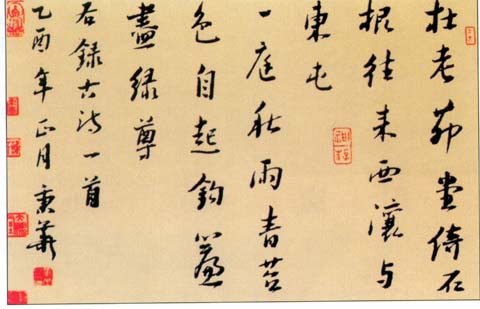 杜老茆堂倚石
根往来西瀼与
東屯
一庭秋雨青苔
色自起鈎簾
盡緑尊
右録古诗一首
乙酉年正月秉